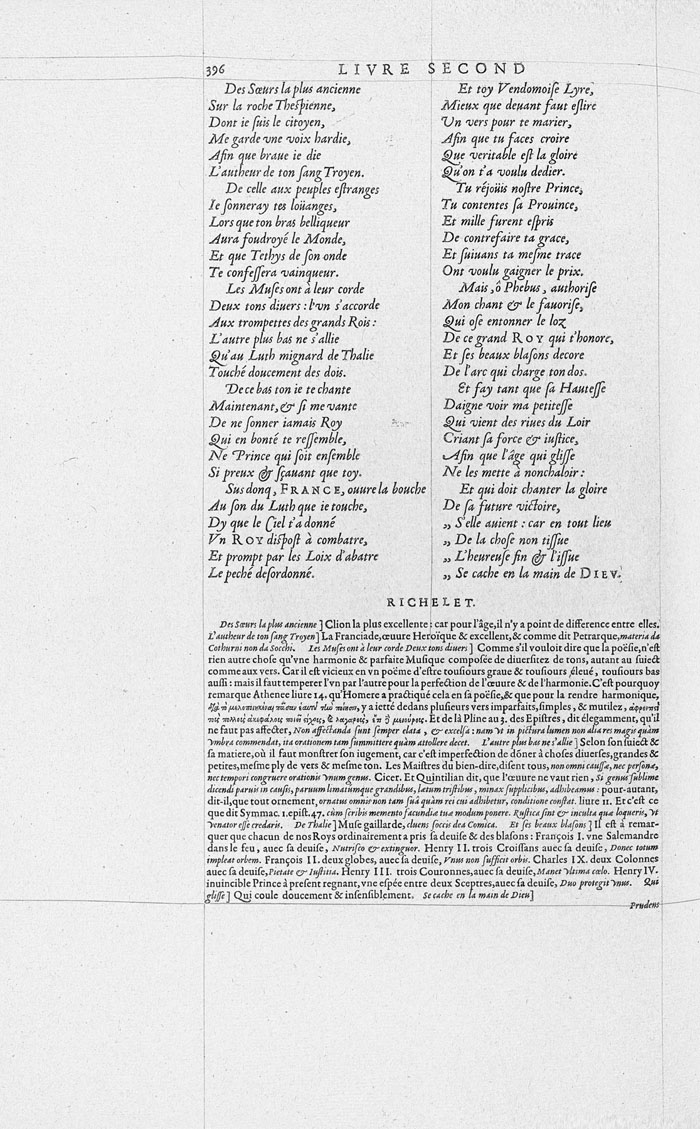 396
LIVRE SECOND
Des Sœurs la plus ancienne
Sur la roche Thespienne,
Dont ie ſuis le citoyen,
Me garde vne voix hardie,
Afin que braue ie die
L'autheur de ton ſang Troyen.
De celle aux peuples eſtranges
Ie ſonneray tes loüanges,
Lors que ton bras belliqueur
Aura foudroyé le Monde,
Et que Tethys de ſon onde
Te confeſſera vainqueur.
Les Muſes ont à leur corde
Deux tons diuers: l'vn s'accorde
Aux trompettes des grands Rois:
L'autre plus bas ne s'allie
Qu'au Luth mignard de Thalie
Touché doucement des dois.
De ce bas ton ie te chante
Maintenant, & ſi me vante
De ne ſonner iamais Roy
Qui en bonté te reſſemble,
Ne Prince qui ſoit enſemble
Si preux & ſçauant que toy.
Sus donq, FRANCE, ouure la bouche
Au ſon du Luth que ie touche,
Dy que le Ciel t'a donné
Vn ROY diſpoſt à combatre,
Et prompt par les Loix d'abatre
Le peché deſordonné.
Et toy Vendomoiſe Lyre,
Mieux que deuant faut eſlire
Vn vers pour te marier,
Afin que tu faces croire
Que veritable eſt la gloire
Qu'on t'a voulu dedier.
Tu réjoüis noſtre Prince,
Tu contentes ſa Prouince,
Et mille furent eſpris
De contrefaire ta grace,
Et ſuiuans ta meſme trace
Ont voulu gaigner le prix.
Mais, ô Phebus, authoriſe
Mon chant & le fauoriſe,
Qui oſe entonner le loz
De ce grand ROY qui t'honore,
Et ſes beaux blaſons decore
De l'arc qui charge ton dos.
Et fay tant que ſa Hauteſſe
Daigne voir ma petiteſſe
Qui vient des riues du Loir
Criant ſa force & iuſtice,
Afin que l'âge qui gliſſe
Ne les mette à nonchaloir:
Et qui doit chanter la gloire
De ſa future victoire,
„ S'elle auient: car en tout lieu
„ De la choſe non tiſſue
„ L'heureuſe fin & l'iſſue
„ Se cache en la main de DIEV.
RICHELET.
Des Sœurs la plus ancienne] Clion la plus excellente: car pour l'âge, il n'y a point de difference entre elles.
L'autheur de ton ſang Troyen] La Franciade, œuure Heroïque & excellent, & comme dit Petrarque, materia da
Cothurni non da Socchi. Les Muſes ont à leur corde Deux tons diuers] Comme s'il vouloit dire que la poëſie, n'eſt
rien autre choſe qu'vne harmonie & parfaite Muſique compoſée de diuerſitez de tons, autant au ſuiect
comme aux vers. Car il eſt vicieux en vn poëme d'eſtre touſiours graue & touſiours éleué, touſiours bas
auſſi: mais il faut temperer l'vn par l'autre pour la perfection de l'œuure & de l'harmonie. C'eſt pourquoy
remarque Athenee liure 14. qu'Homere a practiqué cela en ſa poëſie, & que pour la rendre harmonique,
y a ietté dedans pluſieurs vers imparfaits, ſimples, & mutilez,
Et de là Pline au 3. des Epiſtres, dit élegamment, qu'il
ne faut pas affecter, Non affectanda ſunt ſemper elata, & excelſa: nam vt in pictura lumen non alia res magis quàm
Vmbra commendat, ita orationem tam ſummittere quàm attollere decet. L'autre plus bas ne s'allie] Selon ſon ſuiect &
ſa matiere, où il faut monſtrer ſon iugement, car c'eſt imperfection de dõner à choſes diuerſes, grandes &
petites, meſme ply de vers & meſme ton. Les Maiſtres du bien-dire, diſent tous, non omni cauſſæ, nec perſonæ,
nec tempori congruere orationis vnum genus. Cicet. Et Quintilian dit, que l'œuure ne vaut rien, Si genus ſublime
dicendi paruis in cauſis, paruum limatúmque grandibus, lætum triſtibus, minax ſupplicibus, adhibeamus: pour-autant,
dit-il, que tout ornement, ornatus omnis non tam ſuâ quàm rei cui adhibetur, conditione conſtat. liure 11. Et c'eſt ce
que dit Symmac. 1. epiſt. 47. cùm ſcribis memento facundiæ tuæ modum ponere. Ruſtica ſint & inculta quæ loqueris, vt
venator eſſe credaris. De Thalie] Muſe gaillarde, cluens ſoccis dea Comica. Et ſes beaux blaſons] Il eſt à remar-
quer que chacun de nos Roys ordinairement a pris ſa deuiſe & des blaſons: François I. vne Salemandre
dans le feu, auec ſa deuiſe, Nutriſco & extinguor. Henry II. trois Croiſſans auec ſa deuiſe, Donec totum
impleat orbem. François II. deux globes, auec ſa deuiſe, Vnus non ſufficit orbis. Charles IX. deux Colonnes
auec ſa deuiſe, Pietate & Iuſtitia. Henry III. trois Couronnes, auec ſa deuiſe, Manet vltima cœlo. Henry IV.
inuincible Prince à preſent regnant, vne eſpée entre deux Sceptres, auec ſa deuiſe, Duo protegit vnus. Qui
gliſſe] Qui coule doucement & inſenſiblement. Se cache en la main de Dieu]
Prudens